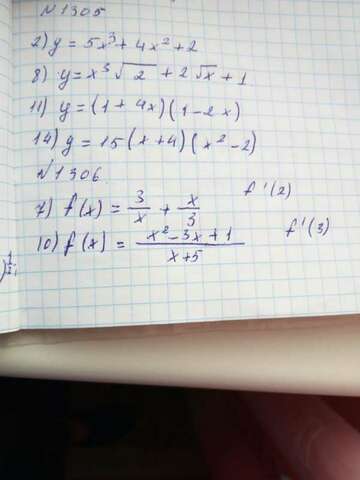 №1305
2) y = 5x³ + 4x² + 2
8) y = x³√2 + 2√x + 1
11) y = (1 + 4x)(1 - 2x)
14) y = 15(x + 4)(x² - 2)
№1306
7) f(x) = 3/x + x/3 f'(2)
10) f(x) = x² - 3x + 1 / x + 5 f'(3)